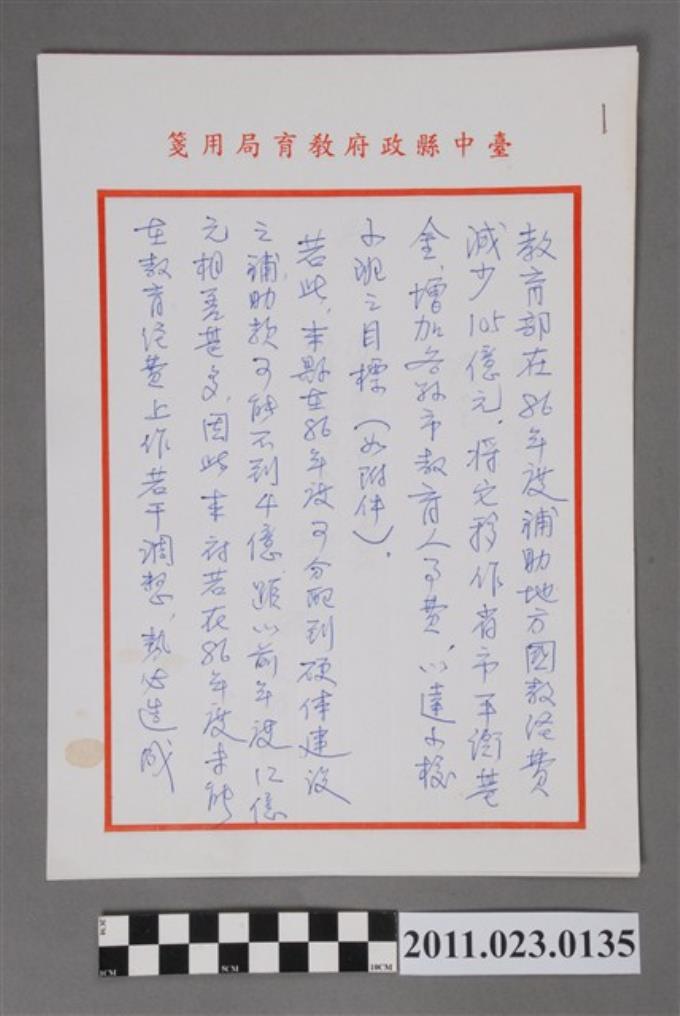 臺中縣政府教育局用箋
教育部在86年度補助地方國教經費
減少105億元，將它移作省市平衡基
金，增加各縣市教育人事費，以達小校
小班之目標（如附件）。
若此，本縣在86年度可分配到硬体建設
之補助款可能不到4億，跟以前年度 億
元相差甚多，因此本府若在86年度未能
在教育經費上作若干調整，勢必造成
1CM
3CM
5CM
10CM
2011.023.0135